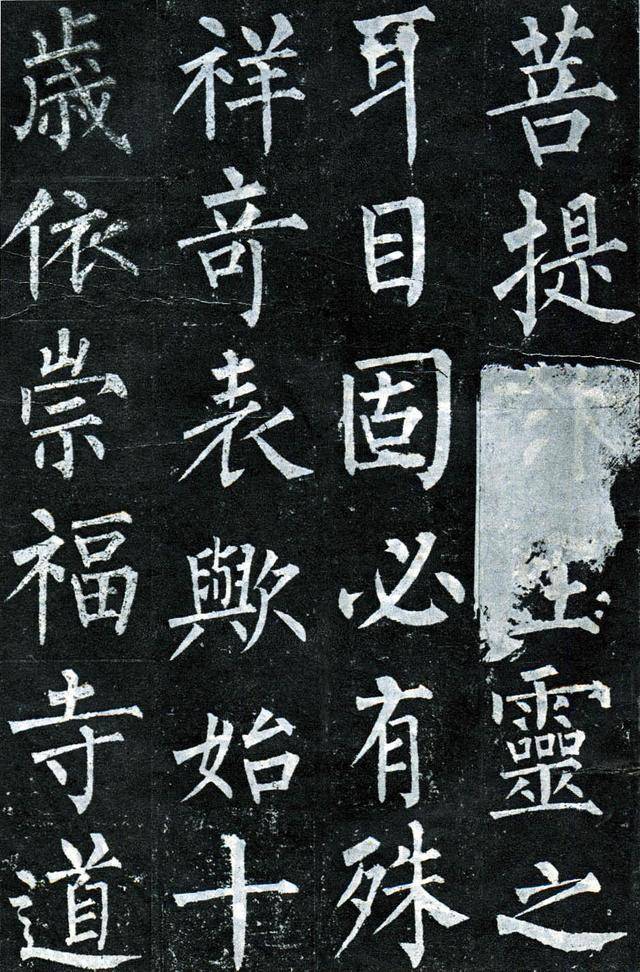 菩提靈之
耳目固必有殊
祥竒表歟始十
歳依崇福寺道